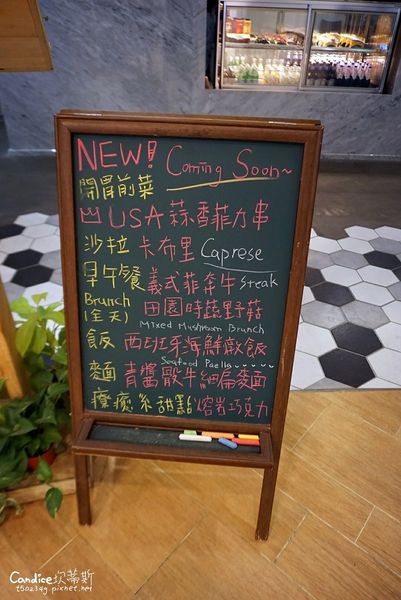 NEW! Coming Soon~
開胃前菜
USA 蒜香菲力串
沙拉 卡布里 Caprese
早午餐 義式菲牛 Steak
Brunch 田園時蔬野菇
(全天) Mixed Mushroom Brunch
飯 西班牙海鮮燉飯
Seafood Paella
麵 青醬骰牛細扁麵
療癒系甜點 熔岩巧克力
Candice坎蒂斯
t50234g.pixnet.net